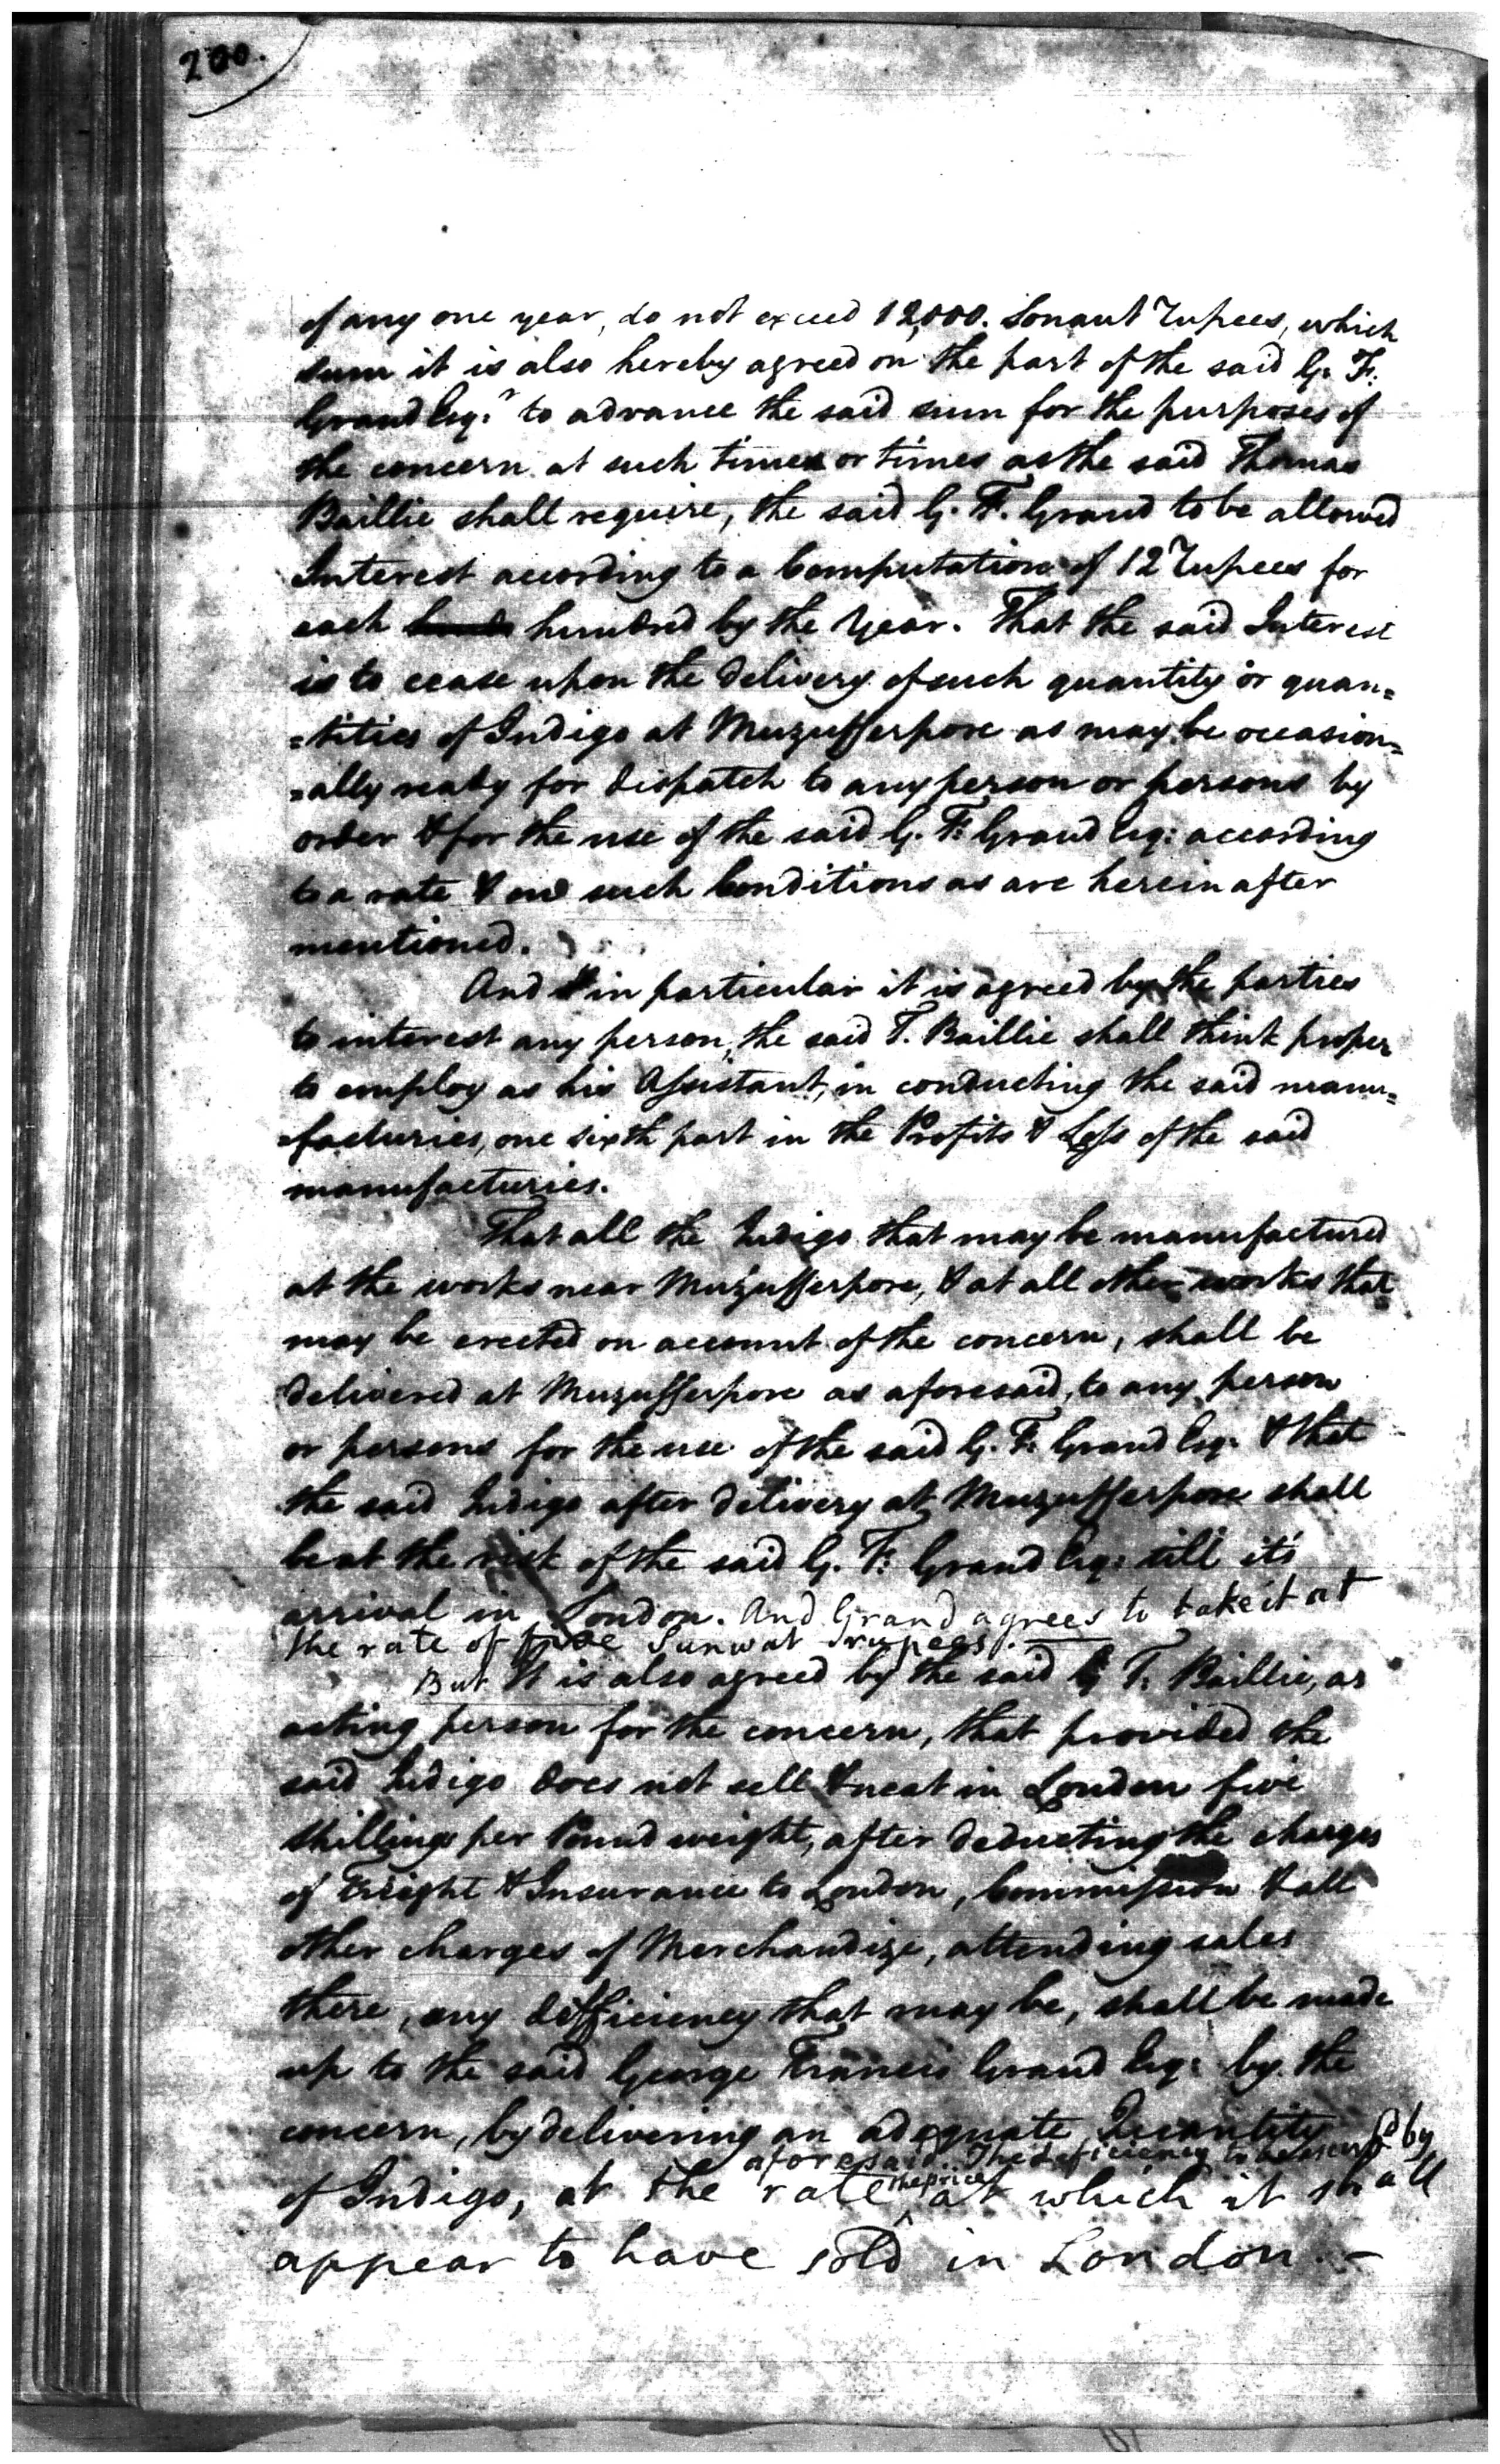 200.
of any one year, do not exceed 12,000. Sonaut Rupees, which
sum it is also hereby agreed on the part of the said G. F.
Grand Esq.r to advance the said sum for the purposes of
the concern at such times or times as the said Thomas
Baillie shall require, the said G. F. Grand to be allowed
Interest according to a Computation of 12 Rupees for
each hundred by the Year. That the said Interest
is to cease upon the delivery of such quantity or quan=
=tities of Indigo at Muzufferpore as may be occasion=
=ally ready for dispatch to any person or persons by
order & for the use of the said G. F: Grand Esq: according
to a rate & on such Conditions as are herein after
mentioned.
And in particular it is agreed by the parties
to interest any person, the said T. Baillie shall think proper
to employ as his Assistant, in conducting the said manu=
=facturies, one sixth part in the Profits & Loss of the said
manufacturies.
That all the Indigo that may be manufactured
at the works near Muzufferpore, & at all other works that
may be erected on account of the concern, shall be
delivered at Muzufferpore as aforesaid, to any person
or persons for the use of the said G. F. Grand Esq. & that
the said Indigo after delivery at Muzufferpore shall
be at the risk of the said G. F: Grand Esq: till it's
arrival in London. And Grand agrees to take it at
the rate of Sunwat rupees.
But It is also agreed by the said T. Baillie, as
acting person for the concern, that provided the
said Indigo does not sell & neat in London five
shillings per Pound weight, after deducting the charges
of Freight & Insurance to London, Commission & all
other charges of Merchandize, attending sales
there, any defficiency that may be, shall be made
up to the said George Francis Grand Esq: by the
concern, by delivering an adequate Quantity
aforesaid. The deficiency to be by
of Indigo, at the rate the price at which it shall
appear to have sold in London. -